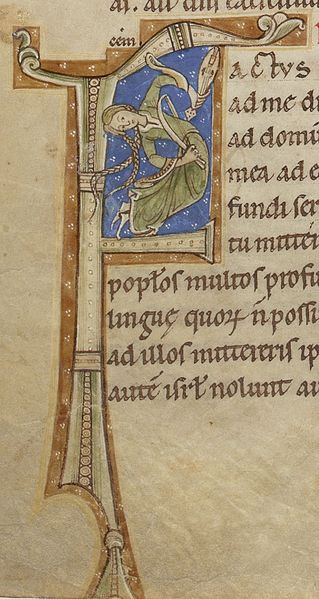 Factus
ad me di
ad domu
mea ad e
fundi ser
tu mitteri
poplos multos profu
linguę quorꝝ n̄ possi
ad illos mittereris ip
autē isrł nolunt au